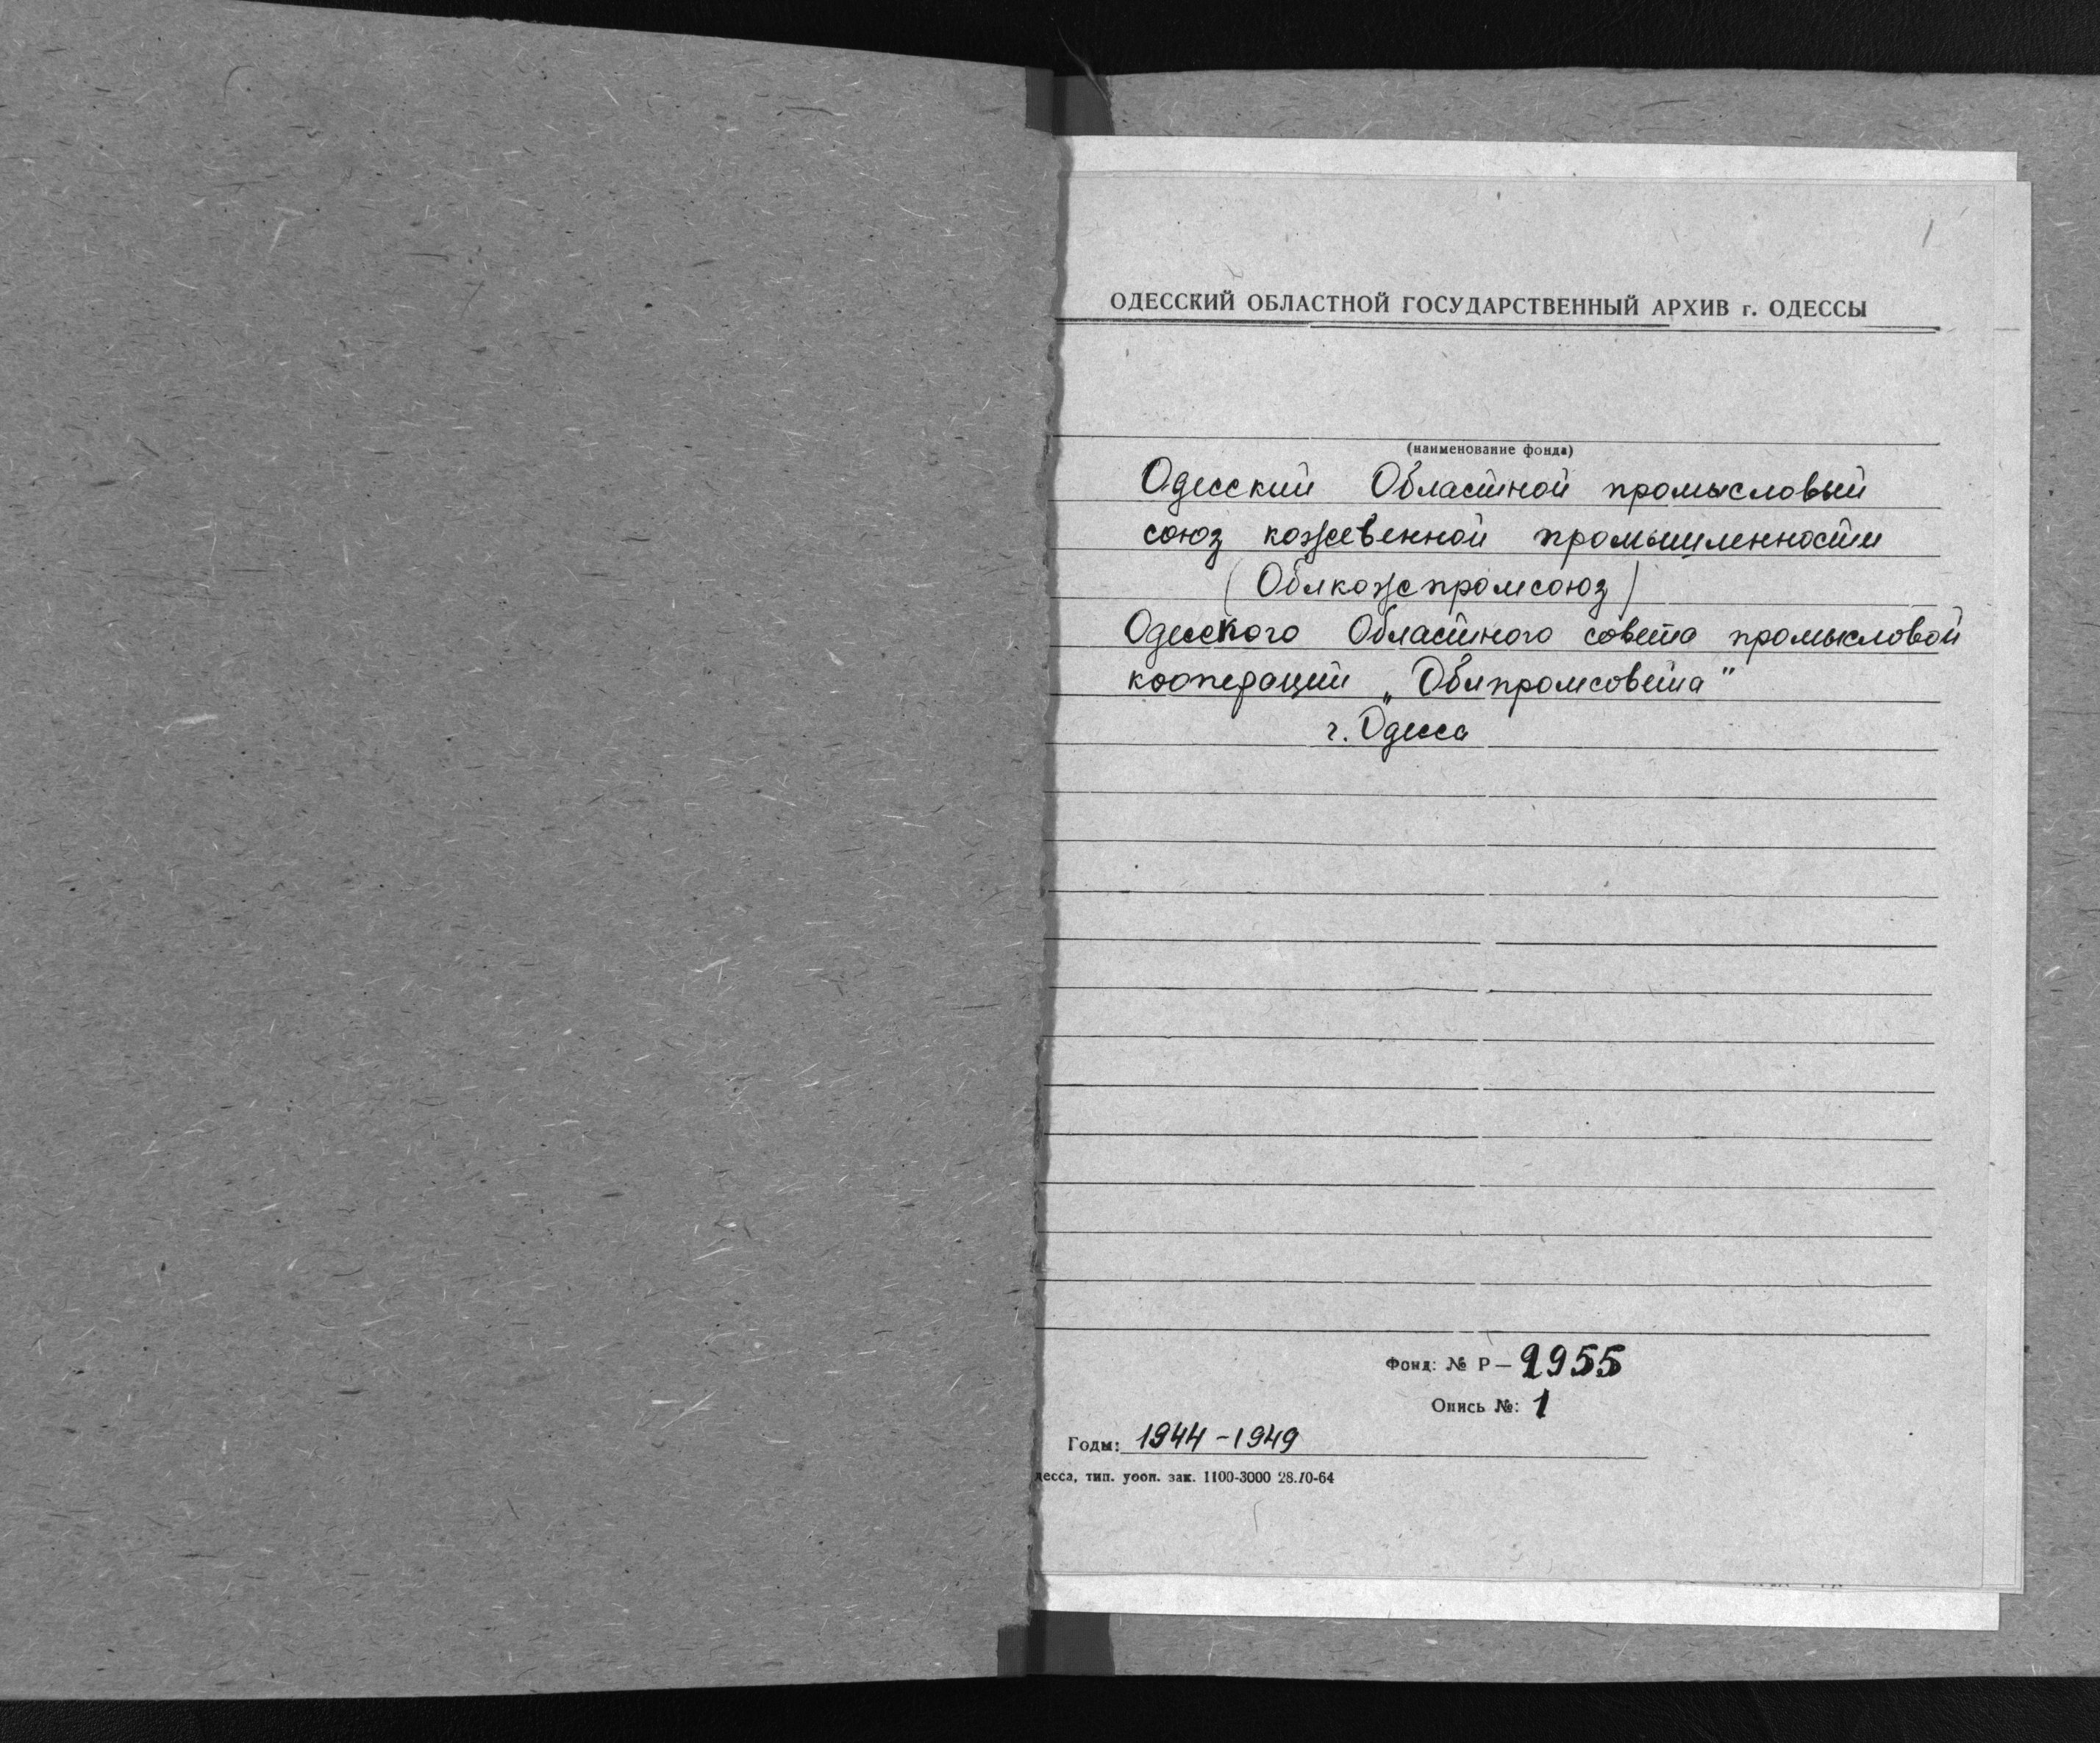 1
ОДЕССКИЙ ОБЛАСТНОЙ ГОСУДАРСТВЕННЫЙ АРХИВ г. ОДЕССЫ
(наименование фонда)
Одесский Областной промысловый
союз кожевенной промышленности
(Облкожпромсоюз)
Одесского Областного совета промысловой
коопераций „Облпромсовета"
г. Одесса
Фонд: № Р—2955
Опись №: 1
Годы: 1944-1949
десса, тип. уооп. зак. 1100-3000 28.10-64